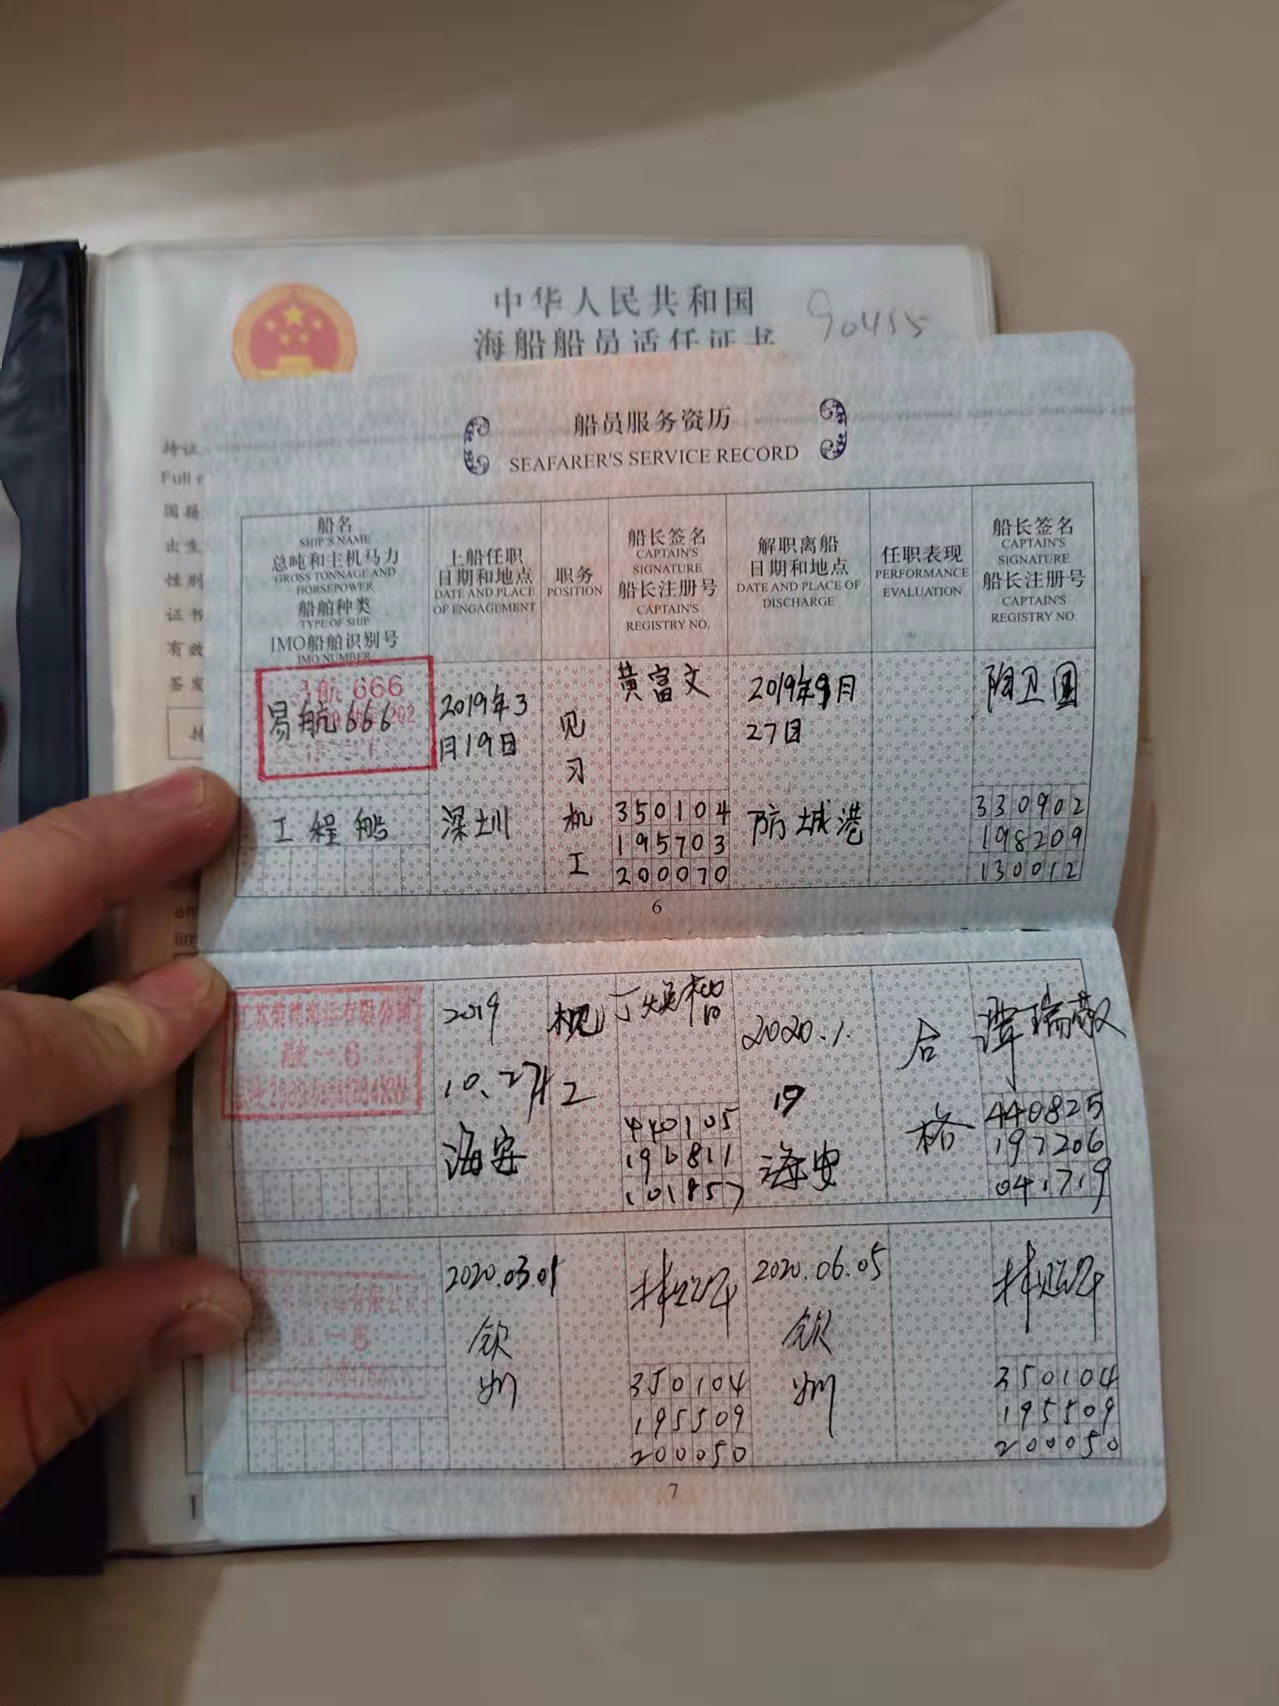 中华人民共和国
海船船员适任证书
90455
持证
Full
国籍
出生
性别
证书
有效
签发
船员服务资历
SEAFARER'S SERVICE RECORD
船名
SHIP'S NAME
总吨和主机马力
GROSS TONNAGE AND
HORSEPOWER
船舶种类
TYPE OF SHIP
IMO船舶识别号
IMO NUMBER
上船任职
日期和地点
DATE AND PLACE
OF ENGAGEMENT
职务
POSITION
船长签名
CAPTAIN'S
SIGNATURE
船长注册号
CAPTAIN'S
REGISTRY NO.
解职离船
日期和地点
DATE AND PLACE OF
DISCHARGE
任职表现
PERFORMANCE
EVALUATION
船长签名
CAPTAIN'S
SIGNATURE
船长注册号
CAPTAIN'S
REGISTRY NO.
航 666
易航666
工程船
2019年3
月19日
深圳
见
习
机
工
黄富文
350104
195703
200070
2019年9月
27日
防城港
陶卫国
330902
198209
130012
6
融一6
2019
10.27
海安
440105
196811
101857
2020.1.
19
海安
合
格
谭瑞敬
440825
197206
041719
一6
2020.03.01
钦
州
350104
195509
200050
2020.06.05
钦
州
350104
195509
200050
7